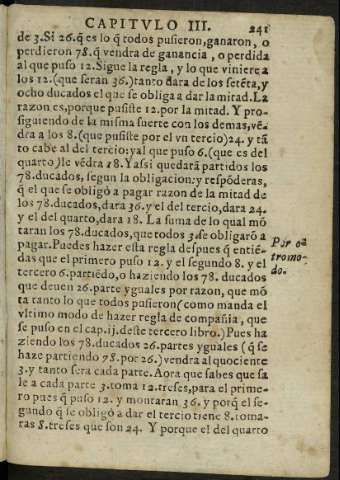 CAPITVLO III. 241
de 3. Si 26. q̃ es lo q̃ todos pusieron, ganaron, o
perdieron 78. q̃ vendra de ganancia, o perdida
al que puso 12. Sigue la regla, y lo que viniere a
los 12. (que seran 36.) tanto dara de los setẽta, y
ocho ducados el que se obliga a dar la mitad. La
razon es, porque pusiste 12. por la mitad. Y pro-
siguiendo de la misma suerte con los demas, vẽ-
dra a los 8. (que pusiste por el vn tercio) 24. y tã
to cabe al del tercio: y al que puso 6. (que es del
quarto,) le vẽdra 18. Y assi quedarã partidos los
78. ducados, segun la obligacion: y respõderas,
q̃ el que se obligò a pagar razon de la mitad de
los 78. ducados, dara 36. y el del tercio, dara 24.
y el del quarto, dara 18. La suma de lo qual mõ
taran los 78. ducados, que todos 3. se obligarõ a
pagar. Puedes hazer esta regla despues q̃ entiẽ-
das que el primero puso 12. y el segundo 8. y el
tercero 6. partiẽdo, o haziendo los 78. ducados
que deuen 26. parte yguales por razon, que mõ
ta tanto lo que todos pusieron (como manda el
vltimo modo de hazer regla de compañia, que
se puso en el cap. ij. deste tercero libro.) Pues ha
ziendo los 78. ducados 26. partes yguales (q̃ se
haze partiendo 78. por 26.) vendra al quociente
3. y tanto sera cada parte. Aora que sabes que sa
le a cada parte 3. toma 12. treses, para el prime-
ro pues q̃ puso 12. y montaran 36. y porq̃ el se-
gundo q̃ se obligò a dar el tercio tiene 8. toma-
ras 8. treses que son 24. Y porque el del quarto
Por otã
tro mo-
do.